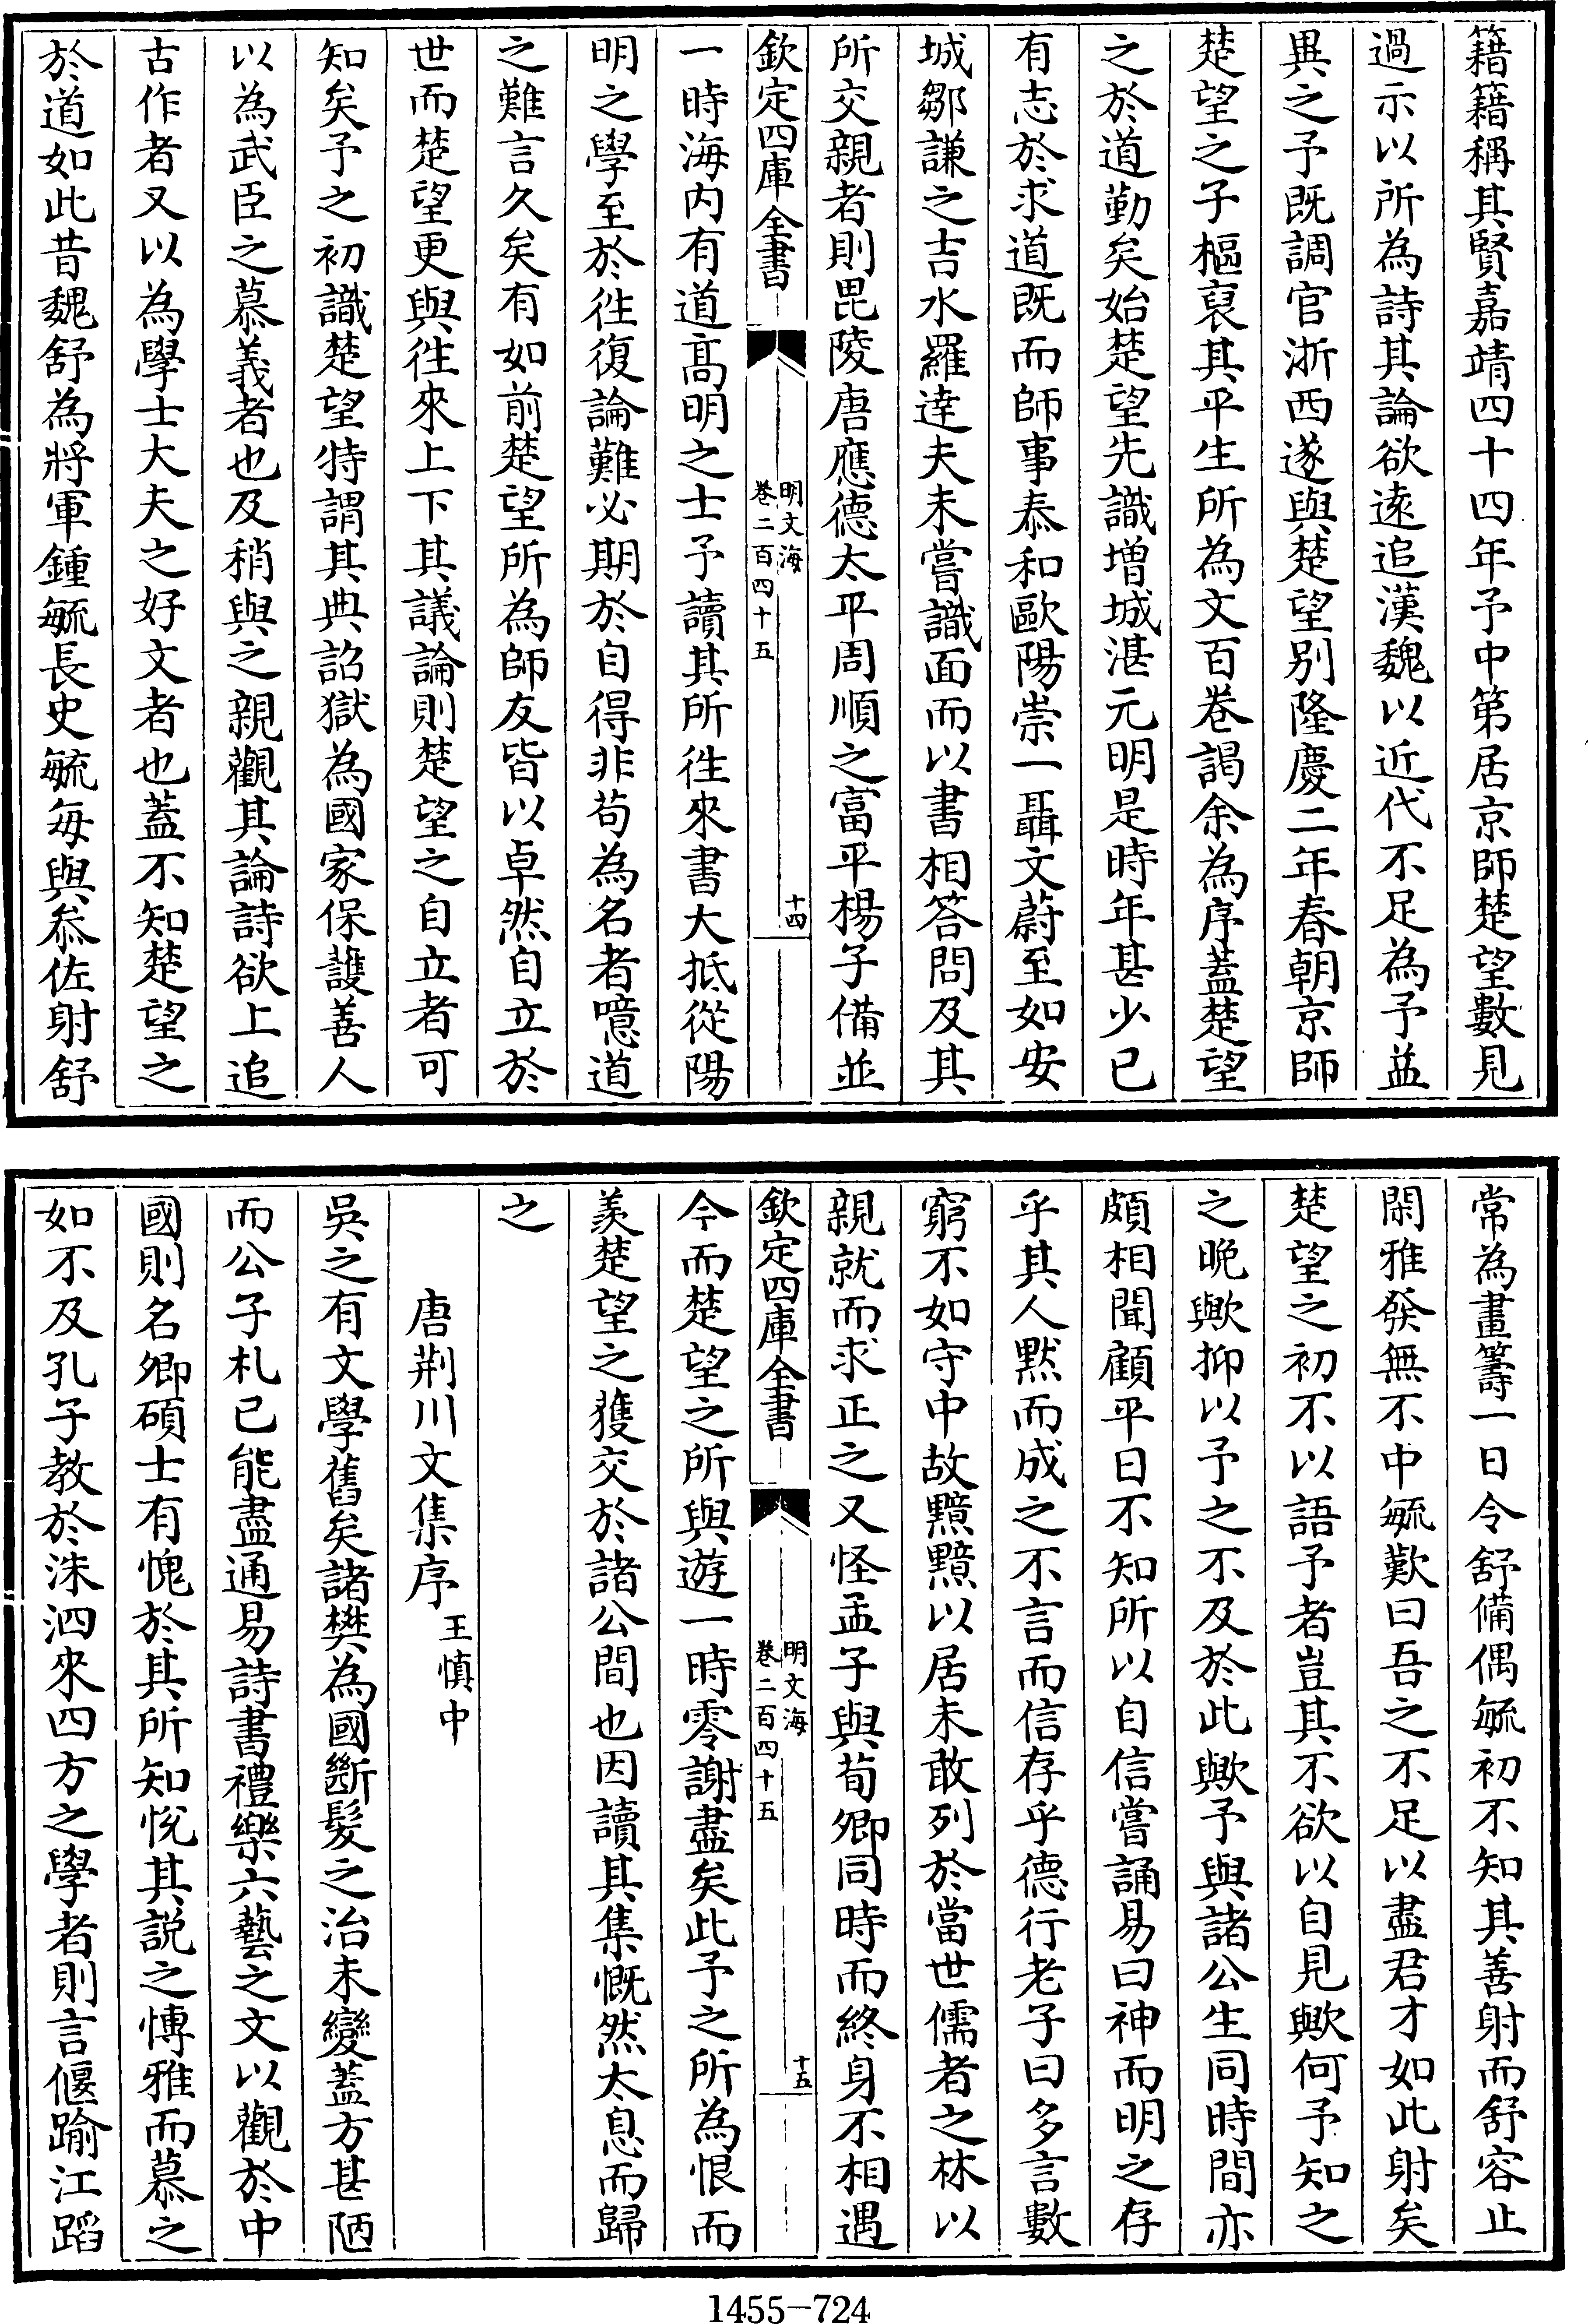 籍籍稱其賢嘉靖四十四年予中第居京師楚望數見
過示以所為詩其論欲遠追漢魏以近代不足為予益
異之予既調官浙西遂與楚望別隆慶二年春朝京師
楚望之子樞裒其平生所為文百卷謁余為序蓋楚望
之於道勤矣始楚望先識增城湛元明是時年甚少已
有志於求道既而師事泰和歐陽崇一聶文蔚至如安
城鄒謙之吉水羅達夫未嘗識面而以書相答問及其
所交親者則毘陵唐應德太平周順之富平楊子備並
欽定四庫全書
明文海
卷二百四十五
十四
一時海內有道高明之士予讀其所往來書大抵從陽
明之學至於往復論難必期於自得非苟為名者噫道
之難言久矣有如前楚望所為師友皆以卓然自立於
世而楚望更與往來上下其議論則楚望之自立者可
知矣予之初識楚望特謂其典詔獄為國家保護善人
以為武臣之慕義者也及稍與之親觀其論詩欲上追
古作者又以為學士大夫之好文者也蓋不知楚望之
於道如此昔魏舒為將軍鍾毓長史毓每與叅佐射舒
常為畫籌一日令舒備偶毓初不知其善射而舒容止
閑雅發無不中毓歎曰吾之不足以盡君才如此射矣
楚望之初不以語予者豈其不欲以自見歟何予知之
之晚歟抑以予之不及於此歟予與諸公生同時間亦
頗相聞顧平日不知所以自信嘗誦易曰神而明之存
乎其人默而成之不言而信存乎德行老子曰多言數
窮不如守中故黯黯以居未敢列於當世儒者之林以
親就而求正之又怪孟子與荀卿同時而終身不相遇
欽定四庫全書
明文海
卷二百四十五
十五
今而楚望之所與遊一時零謝盡矣此予之所為恨而
羨楚望之獲交於諸公間也因讀其集慨然太息而歸
之
唐荆川文集序王慎中
吳之有文學舊矣諸樊為國斷髮之治未變蓋方甚陋
而公子札已能盡通易詩書禮樂六藝之文以觀於中
國則名卿碩士有愧於其所知悅其說之博雅而慕之
如不及孔子教於洙泗來四方之學者則言偃踰江蹈
1455-724